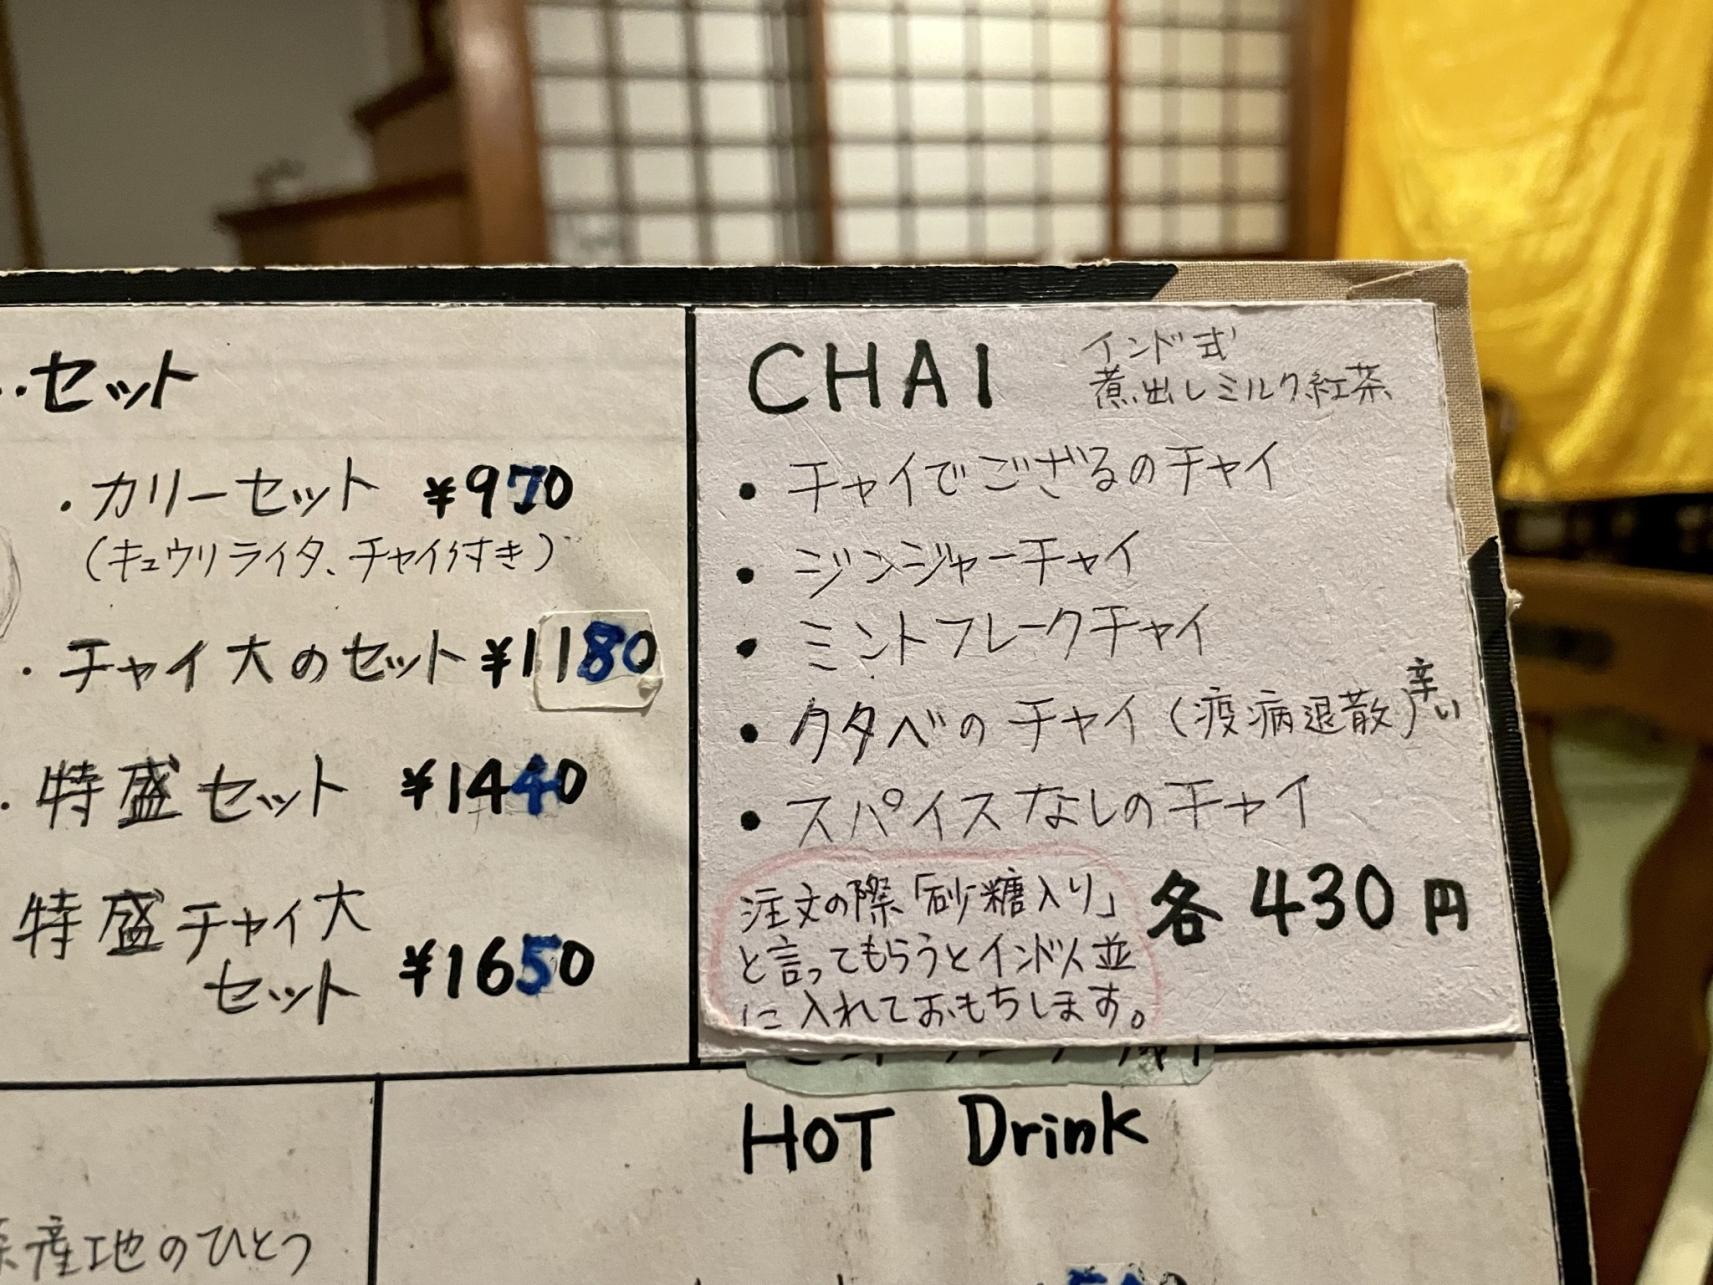 セット
・カリーセット ¥970
(キュウリライタ、チャイ付き)
・チャイ大のセット ¥1180
・特盛セット ¥1440
特盛チャイ大
セット ¥1650
CHAI
インド式
煮出しミルク紅茶
• チャイでござるのチャイ
• ジンジャーチャイ
• ミントフレークチャイ
• クタベのチャイ(疫病退散)辛い
• スパイスなしのチャイ
各430円
注文の際「砂糖入り」
と言ってもらうとインド人並
に入れておもちします。
HOT Drink
産地のひとつ